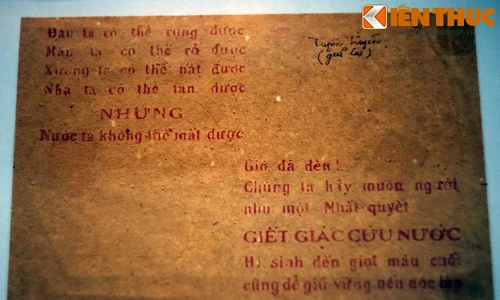 KIẾN THỨC
Đầu ta có thể rụng được
Máu ta có thể rỏ được
Xương ta có thể nát được
Nhà ta có thể tan được
NHƯNG
Nước ta không thể mất được
Giờ đã đến!
Chúng ta hãy muôn người
như một Nhất quyết
GIẾT GIẶC CỨU NƯỚC
Hi sinh đến giọt máu cuối
cũng để giữ vững nền độc lập